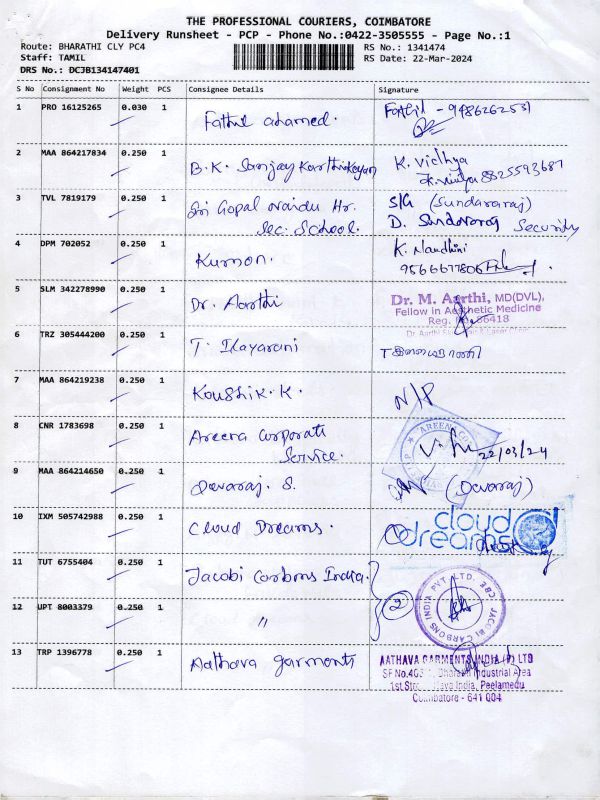 THE PROFESSIONAL COURIERS, COIMBATORE
Delivery Runsheet - PCP - Phone No.:0422-3505555 - Page No.:1
Route: BHARATHI CLY PC4
RS No.: 1341474
Staff: TAMIL
RS Date: 22-Mar-2024
DRS No.: DCJB134147401
S No Consignment No Weight PCS Consignee Details Signature
1 PRO 16125265 0.030 1 Fathil ahamed. Fathil - 9486262531
2 MAA 864217834 0.250 1 B.K. Sanjay Karthikeyan K. Vidhya
8825593687
3 TVL 7819179 0.250 1 Sri Gopal Naidu Hr. S/G (Sundararaj)
Sec. School. D. Sundararaj Security
4 DPM 702052 0.250 1 Kumon. K. Nandhini
9566677806
5 SLM 342278990 0.250 1 Dr. Aarthi Dr. M. Aarthi, MD(DVL),
Fellow in Aesthetic Medicine
Reg. No. 86418
6 TRZ 305444200 0.250 1 T. Ilayarani T இளையராணி
7 MAA 864219238 0.250 1 Koushik. K. N/P
8 CNR 1783698 0.250 1 Areera Corporate
Service. 22/03/24
9 MAA 864214650 0.250 1 Devaraj. S. (Devaraj)
10 IXM 505742988 0.250 1 Cloud Dreams. cloud
dreams
11 TUT 6755404 0.250 1 Jacobi Carbons India. 2
JACOBI CARBONS INDIA PVT LTD. CBE
12 UPT 8003379 0.250 1 "
13 TRP 1396778 0.250 1 Aathava garments AATHAVA GARMENTS INDIA (P) LTD
Industrial Area
India, Peelamedu
Coimbatore - 641 004